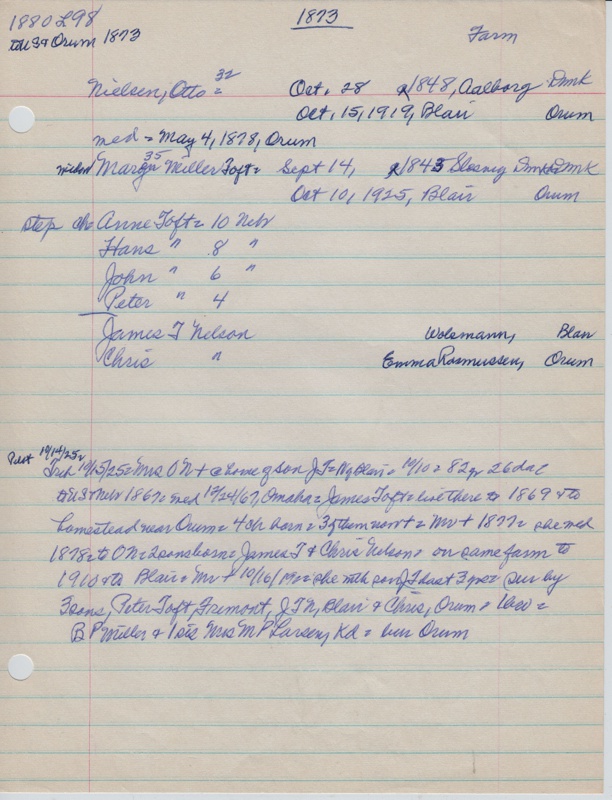 1880 L98
1873
to US & Orum 1873
Farm
Nielsen, Otto = 32 Oct. 28 1848, Aalborg Dmk
Oct. 15, 1919, Blair Orum
med = May 4, 1878, Orum
Miller Toft = 35 Sept 14, 1843 Dmk
Oct 10, 1925, Blair Orum
step ch = Anne Toft = 10 Nebr
Hans " 8 "
John " 6 "
Peter " 4
James T Nelson Wolsmann, Blair
Chris " Emma Rasmussen, Orum
Pilot 10/14/25
10/15/25 = Mrs O N + @ home of son J T = Blair = 10/10 = 82 yr 26 da (
to US & Nebr 1867 = med 12/24/67, Omaha = James Toft = live there to 1869 & to
homestead near Orum = 4 ch born = 3 of them now + = Mr + 1877 = she med
1878 = to O N = 2 sons born = James T & Chris Nelson = on same farm to
1910 & to Blair = Mr + 10/16/19 = she with son J T last 3 yrs = sur by
3 sons, Peter Toft, Fremont, J T N, Blair & Chris, Orum = 1 bro =
B P Miller & 1 sis Mrs M P Larsen, Kd = bur Orum